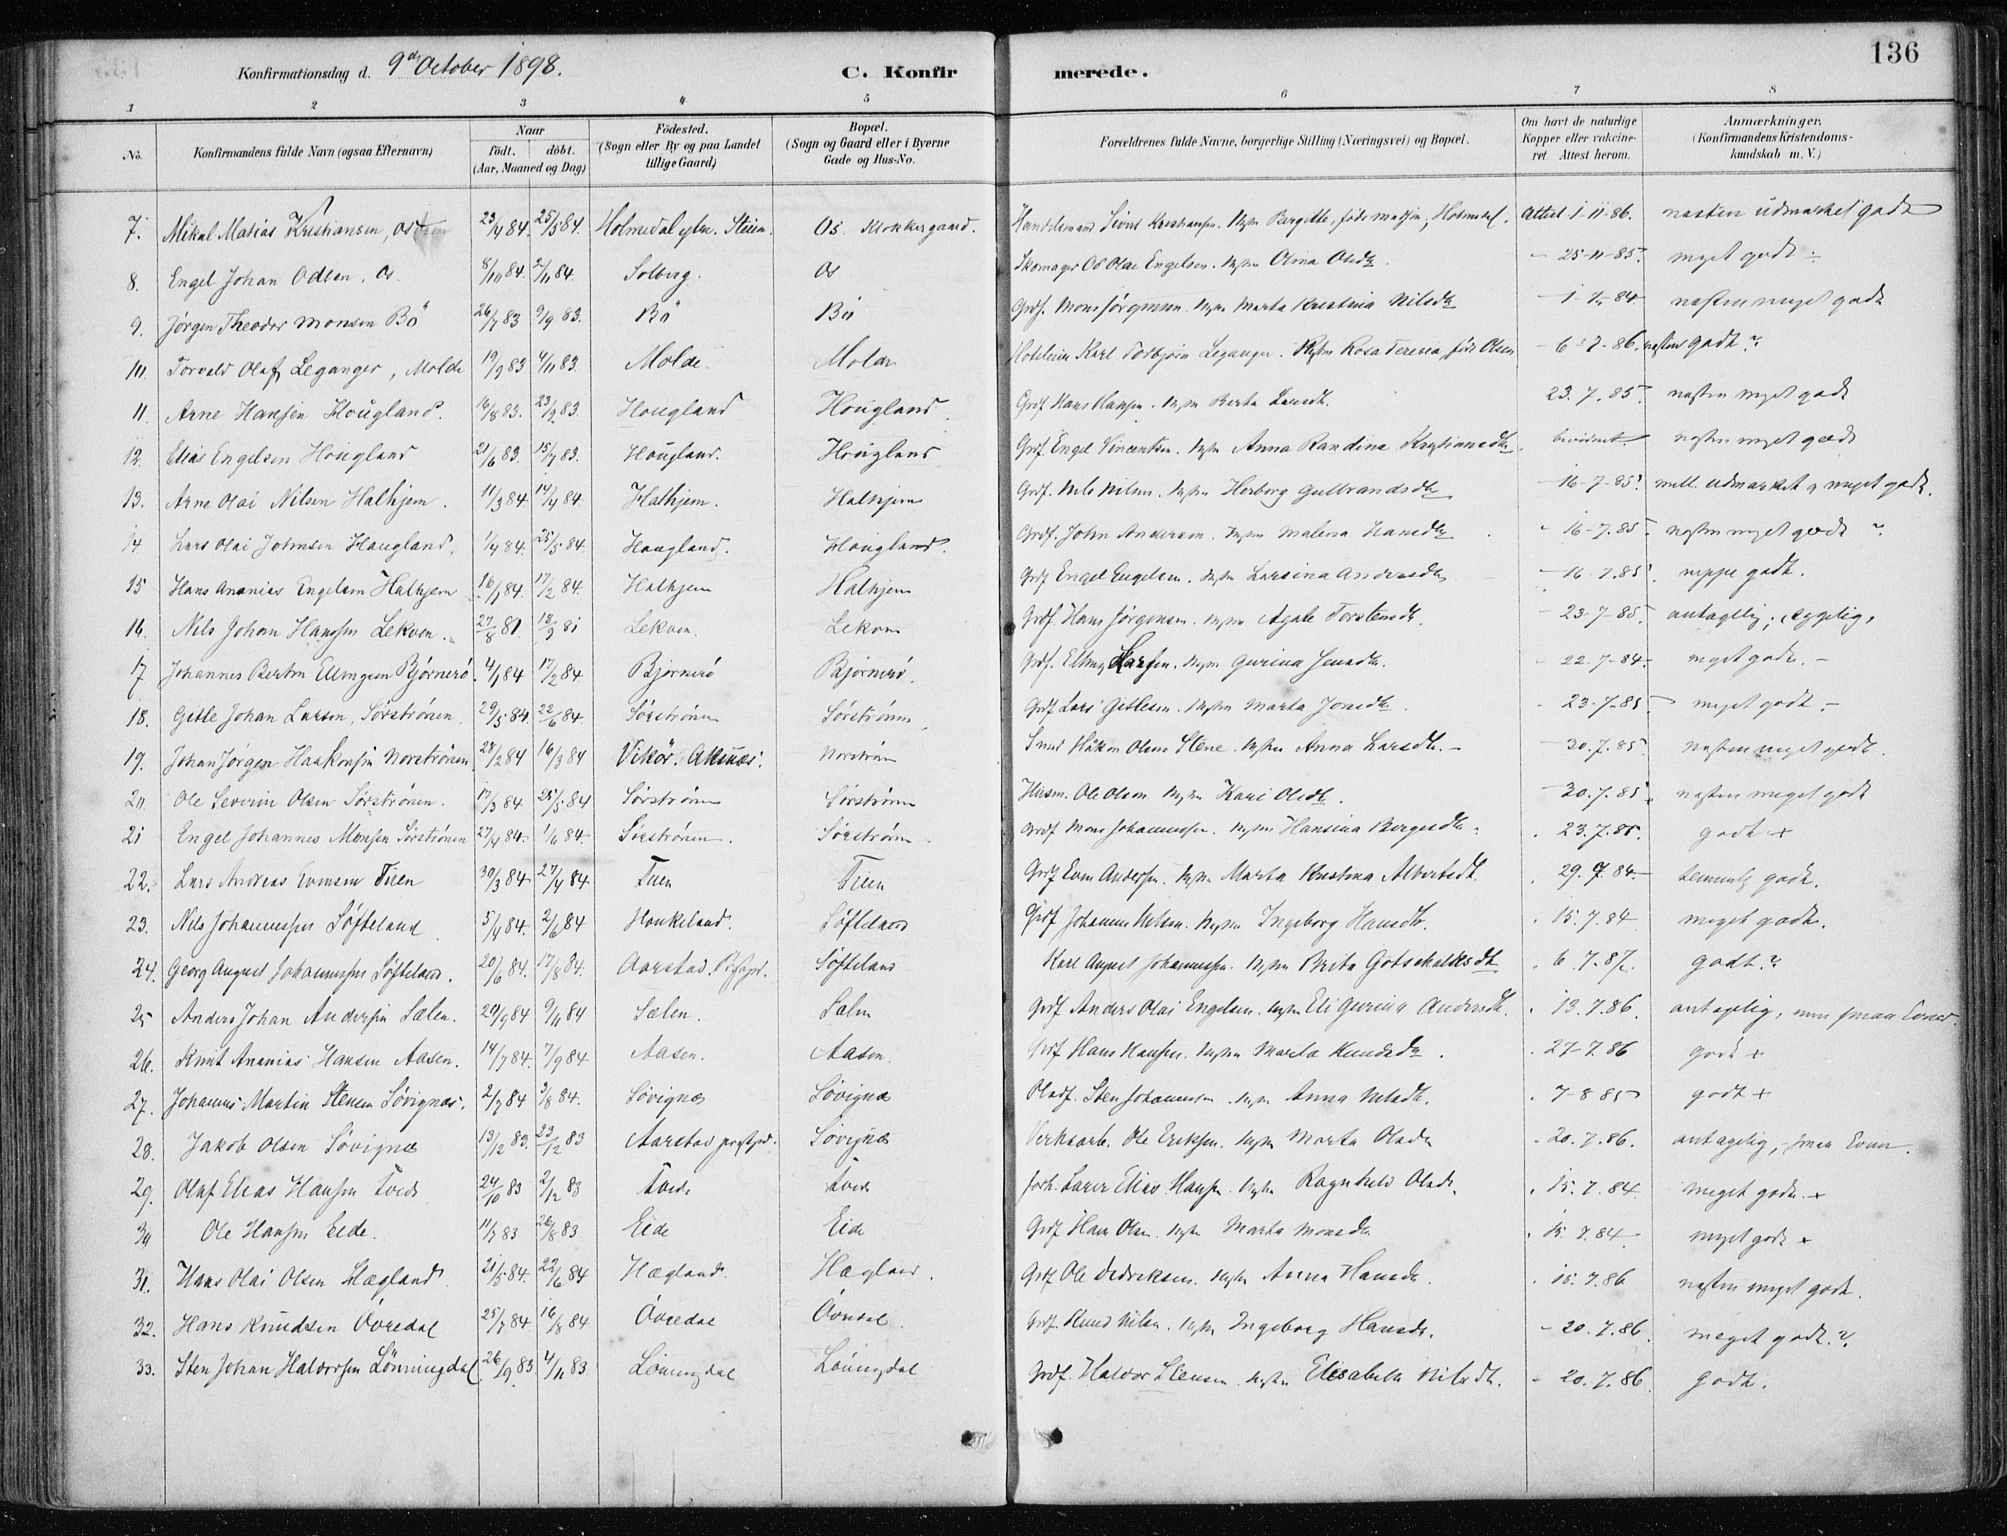 136
Konfirmationsdag d. 9de October 1898. C. Konfir merede.
1 2 3 4 5 6 7 8
No. Konfirmandens fulde Navn (ogsaa Efternavn) Naar født. døbt. (Aar, Maaned og Dag) Fødested. (Sogn eller By og paa Landet tillige Gaard) Bopæl. (Sogn og Gaard eller i Byerne Gade og Hus-No. Forældrenes fulde Navne, borgerlige Stilling (Næringsvei) og Bopæl. Om havt de naturlige Kopper eller vakcineret. Attest herom. Anmærkninger. (Konfirmandens Kristendomskundskab m. V.)
7. Mikal Matias Kristiansen, Os 23/4 84. 25/5 84. Holmedal Os. Klokkergaard. Attest 1-11-86. næsten udmærket godt
8. Engel Johan Odsen, Os. 8/10 84. 2/11 84. Solberg. Os Skomager Od Olai Engelsen. Hustru Olina Olsdtr. - 25-11-85. meget godt ÷
9. Jørgen Theodor Monsen Bø 26/7 83 9/9 83. Bø Bø Grdf. Mons Jørgensen. Hustru Marta Kristina Nilsdtr næsten meget godt
10. Torvald Olaf Leganger, Molde 19/9 83 4/11 83. Molde. Molde Karl Leganger. Hustru Rosa født Olsen - 6-7-86. næsten godt ?
11. Arne Hansen Hougland. 16/8 83. 23/9 83. Hougland Hougland Grdf. Hans Hansen. Hustru Berta Larsdtr. 23.7.85. næsten meget godt
12. Elias Engelsen Hougland 21/6 83. 15/7 83. Hougland. Hougland Grdf. Engel Vincentsen. Hustru Anna Randina Kristiansdtr. bevidnet næsten meget godt
13. Arne Olai Nilsen Halhjem. 11/3 84. 14/4 84. Halhjem. Halhjem Grdf. Nils Nilsen. Hustru Herborg Gulbrandsdtr - 16-7-85. mell. udmærket og meget godt.
14. Lars Olai Johnsen Haugland. 1/4 84. 25/5 84. Hougland. Hougland. Grdf. John Andersen. Hustru Malena Hansdtr - 16-7.85. næsten meget godt ?
15 Hans Ananias Engelsen Halhjem 16/1 84. 17/2 84. Halhjem Halhjem Grdf Engel Engelsen. Hustru Larsina Andersdtr - 16-7.85. neppe godt.
16. Nils Johan Hansen Lekven. 27/8 81. 18/9 81 Lekven. Lekven Grdf. Hans Jørgensen. Hustru Agate Torstensdtr. - 23-7-85. antagelig; sygelig.
17 Johannes Bertin Ellingsen Bjørnerø. 4/1 84 17/2 84 Bjørnerø Bjørnerø. Grdf. Elling Larsen. Hustru Gurina Jensdtr. - 22-7-84. meget godt. -
18. Gitle Johan Larsen, Sørstrønen. 29/5 84. 22/6 84. Sørstrønen Sørstrønen Grdf Lars Gitlesen. Hustru Marta Jonsdtr. - 23-7-85 meget godt. -
19. Johan Jørgen Haakonsen Norstrønen 28/2 84 16/3 84 Vikør. Norstrøn Smed Håkon Olsen Stene. Hustru Anna Larsdtr. - - 30.7.85. næsten meget godt.
20. Ole Severin Olsen Sørstrønen. 17/3 84. 25/5 84 Sørstrønen Sørstrønen Husm. Ole Olson Hustru Kari Olsdtr. - 30.7.85. næsten meget godt
21 Engel Johannes Monsen Sørstrønen 27/4 84. 1/6 84. Sørstrønen. Sørstrønen Grdf Mons Johannessen. Hustru Hansina Børgesdtr. . 23.7.85. godt +
22. Lars Andreas Evensen Tuen 30/3 84 27/4 84 Tuen Tuen Grdf Even Andersen. Hustru Marta Kristina Albertsdtr. . 29.7.84. temmelig godt.
23. Nils Johannessen Søfteland 5/4 84. 2/6 84 Haukeland. Søfteland Grdf Johannes Nilsen. Hustru Ingeborg Hansdtr. . 15.7.84 meget godt.
24. Georg August Johannessen Søfteland. 20/6 84. 17/8 84. Aarstad. Søfteland Karl August Johannessen. Hustru Brita Gotschalksdtr . 6.7.87. godt.?
25 Anders Johan Andersen Sælen. 20/9 84 9/11 84 Sælen. Sælen Grdf Anders Olai Engelsen. Hustru Eli Gurina Andersdtr. . 13.7.86. antagelig, men smaa Evner.
26. Knut Ananias Hansen Aasen. 14/7 84. 7/9 84 Aasen. Aasen. Grdf Hans Hansen. Hustru Marta Knudsdtr. . 27-7.86 godt +
27. Johannes Martin Stensen Søvignæs. 2/7 84 3/8 84. Søvignæs Søvignæs Sten Johannessen. Hustru Anna Nilsdtr. . 7-8 85 godt +
28. Jakob Olsen Søvignæs 13/12 83. 23/12 83 Aarstad prestgd. Søvignæs Verksarb. Ole Eriksen. Hustru Marta Olsdtr - 20.7.86. antagelig, smaa Evner.
29. Olaf Elias Hansen Tveit 24/10 83 2/12 83 Tveit Tveit Elias Hansen. Hustru Ragnhild Olsdtr. . 15.7.84. meget godt. +
30 Ole Hansen Eide. 11/7 83 26/8 83 Eide Eide Grdf Hans Olsen. Hustru Marta Monsdtr . 15.7.84. meget godt +
31. Hans Olai Olsen Hægland 21/5 84. 22/6 84 Hægland. Hægland. Grdf Ole Didriksen. Hustru Anna Hansdtr. . 15.7.86 næsten meget godt.
32. Hans Knudsen Øvredal 25/7 84. 16/8 84 Øvredal Øvredal. Grdf. Knud Nilsen. Hustru Ingeborg Hansdtr. - 20.7.86. meget godt.?
33. Sten Johan Haldorsen Lønningdal 26/9 83. 4/11 83. Lønningdal Lønningdal Grdf. Haldor Stensen. Hustru Elisabeth Nilsdtr. - 20.7.86. godt.